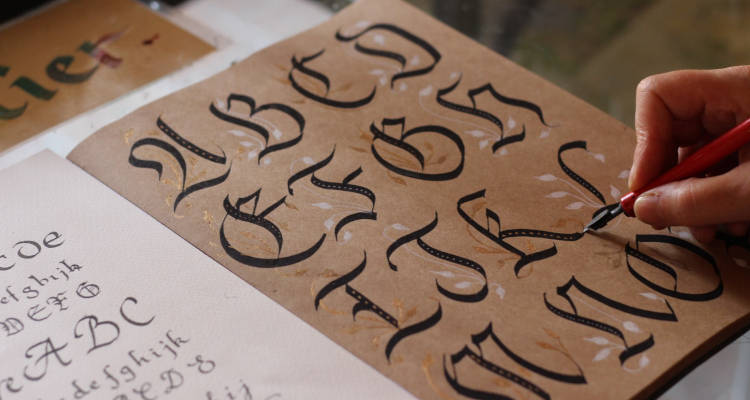 tier
A B C D
E F G H
I J K L
M N O
cde
efghijk
DEFG
ABC
defghijk